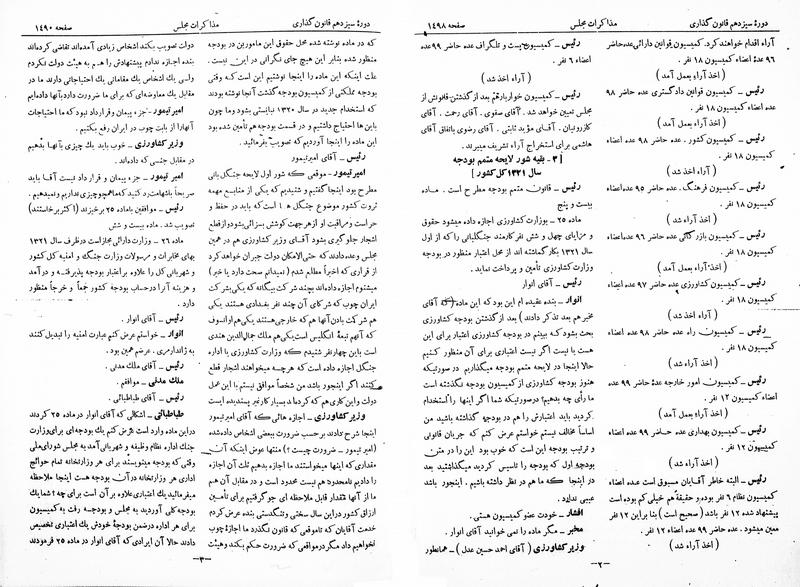 دورهٔ سیزدهم قانون گذاری
مذاکرات مجلس
صفحه ۱۴۹۸
آراء اقدام خواهند کرد. کمیسیون قوانین دارائی عده حاضر
۹۶ عدهٔ اعضاء کمیسیون ۱۸ نفر.
(اخذ آراء بعمل آمد)
رئیس ـ کمیسیون قوانین دادگستری عده حاضر ۹۸
عده اعضاء کمیسیون ۱۸ نفر.
(اخذ آراء بعمل آمد)
رئیس ـ کمیسیون کشور. عده حاضر ۹۸ عده اعضاء
کمیسیون ۱۸ نفر.
(آراء اخذ شد)
رئیس ـ کمیسیون فرهنگ. عده حاضر ۹۵ عده اعضاء
کمیسیون ۱۸ نفر.
(اخذ آراء شد)
رئیس ـ کمیسیون بازرگانی عده حاضر ۹۶ عده اعضاء
کمیسیون ۱۸ نفر.
(اخذ آراء بعمل آمد)
رئیس ـ کمیسیون کشاورزی عده حاضر ۹۷ عده اعضاء
کمیسیون ۱۸ نفر.
(اخذ آراء شد)
رئیس ـ کمیسیون راه عده حاضر ۹۸ عده اعضاء
کمیسیون ۱۸ نفر.
(اخذ آراء شد)
رئیس ـ کمیسیون امور خارجه عدهٔ حاضر ۹۹ عده
اعضاء کمیسیون ۱۲ نفر.
(اخذ آراء بعمل آمد)
رئیس ـ کمیسیون بهداری عده حاضر ۹۹ عده اعضاء
کمیسیون ۱۲ نفر.
(آراء اخذ شد)
رئیس ـ البته خاطر آقایان مسبوق است عده اعضاء
کمیسیون نظام ۶ نفر بوده و حقیقة هم خیلی کم بوده است
پیشنهاد شده ۱۲ نفر باشد (صحیح است) بنا براین ۱۲ نفر
معین میشود. عده حاضر ۹۹ عده اعضاء ۱۲ نفر.
(اخذ آراء شد)
رئیس ـ کمیسیون پست و تلگراف عده حاضر ۹۹ عده
اعضاء ۶ نفر.
(آراء اخذ شد)
رئیس ـ کمیسیون خواربار هم بعد از گذشتن قانونش از
مجلس تعیین خواهد شد. آقای صفوی. آقای رحمت. آقای
کازرونیان. آقای مؤید ثابتی. آقای رضوی باتفاق آقای
هاشمی برای استخراج آراء تشریف میبرند.
[۳ ـ بقیه شور لایحه متمم بودجه
سال ۱۳۲۱ کل کشور]
رئیس ـ قانون متمم بودجه مطرح است. ماده
بیست و پنج
ماده ۲۵ ـ بوزارت کشاورزی اجازه داده میشود حقوق
و مزایای چهل و شش نفر کارمند جنگلبانی را که از اول
سال ۱۳۲۱ بکار گماشته اند از محل اعتبار منظور در بودجه
وزارت کشاورزی تأمین و پرداخت نماید.
رئیس ـ آقای انوار
انوار ـ بنده عقیده ام این بود که این ماده (که آقای
مخبر هم بعد تذکر دادند) بعد از گذشتن بودجه کشاورزی
بحث بشود که ببینم در بودجه کشاورزی اعتبار برای این
هست یا نیست اگر نیست اعتباری برای آن منظور کنیم
حالا اینجا در لایحه متمم بودجه میگذاریم در صورتیکه
هنوز بودجه کشاورزی از کمیسیون بودجه نگذشته است
ما رأی چه بدهیم؟ درصورتیکه شما اگر اینها را استخدام
کردید باید اعتبارش را هم در بودجه گذاشته باشید من
اساساً مخالف نیستم خواستم عرض کنم که جریان قانونی
و ترتیب بودجه این است که خوب بود این را در متن
بودجه اول که بودجه را تأسیس کردید میگذاشتید بعد
در اینجا که ما هم در نظر داشته باشیم. اینجور باشد
عیبی ندارد.
افشار ـ خودت عضو کمیسیون هستی.
مخبر ـ مگر ماده را نمی خوانید آقای انوار.
وزیر کشاورزی (آقای احمد حسین عدل) ـ همانطور
ـ ۲ ـ
دورهٔ سیزدهم قانون گذاری
مذاکرات مجلس
صفحه ۱۴۹۰
که در ماده نوشته شده محل حقوق این مامورین در بودجه
منظور شده بنابر این هیچ جای نگرانی در این نیست.
علت اینکه این ماده را اینجا نوشتیم این است که وقتی
بودجه مملکتی از کمیسیون بودجه گذشت آنجا نوشته بودند
که استخدام جدید در سال ۱۳۲۰ نبایستی بشود وما چون
باین ها احتیاج داشتیم و در قسمت بودجه هم تأمین شده بود
این ماده را اینجا آوردیم که تصویب بفرمائید.
رئیس ـ آقای امیرتیمور
امیر تیمور ـ موقعی که شور اول لایحه جنگل بانی
مطرح بود اینجا گفتیم و شنیدیم که یکی از منابع مهمه
ثروت کشور موضوع جنگل ها است که باید در حفظ و
حراست و مراقبت او از هر جهت کوشش بسزائی بشود و از قطع
اشجار جلوگیری بشود آقای وزیر کشاورزی هم در همین
مجلس وعده دادند که حتی الامکان دولت جبران خواهد کرد
از قراری که اخیراً مطلع شدم (نمیدانم صحت دارد یا خیر)
میشنوم اجازه داده اند بچند شرکت بیگانه که یکی شرکت
ایران چوب که شرکای آن چند نفر بغدادی هستند یکی
هم شرکت بادن آنها هم که خارجی هستند یکی هم اوانسوف
که آنهم تبعهٔ انگلیس است یکی هم ملک جمال الدین هندی
است باین چهار نفر شنیدم که وزارت کشاورزی یا اداره
جنگل اجازه داده است که هرچه میخواهند اشجار قطع
کنند اگر اینجور باشد من شخصاً موافق نیستم با این عمل
دولت و این کاری هم که کردهاند بسیار کار خیر پسندیده ایست
وزیر کشاورزی ـ اجازه هائی که آقای امیرتیمور
اینجا شرح دادند برحسب ضرورت ببعضی اشخاص داده شده
(امیر تیمور ـ ضرورت چیست؟) منتها عوض اینکه آن
مقداری که اینها میخواستند ما اجازه بدهیم ثلث آن اجازه
را دادیم نامحدود هم نیست محدود است و در مقابل آن هم
ما از آنها مقدار قابل ملاحظه ای جو گرفتیم برای تأمین
ارزاق کشور در این سال سختی و تنگدستی بنده عرض کردم
خدمت آقایان که تا موقعی که قانون نگذرد ما اجازهٔ چوب
نخواهیم داد مگر در مواقعی که ضرورت حکم بکند وهیئت
دولت تصویب بکند اشخاص زیادی آمده اند تقاضی کرده اند
بنده اجازه ندادم پیشنهادش را هم به هیئت دولت نکردم
ولی یک اشخاص یک مقاماتی یک احتیاجاتی دارند ما در
مقابل یک معاوضه ای که برای ما ضرورت دارد بآنها داده ایم
امیر تیمور ـ جزء پیمان و قرارداد نبود که ما احتیاجات
آنهارا از بابت چوب در ایران رفع بکنیم.
وزیر کشاورزی ـ خوب باید یک چیزی بآنها بدهیم
در مقابل جنسی که داده اند.
امیر تیمور ـ جزء پیمان و قرارداد نیست آقا باید
صریحاً باشهامت رد کنید که ما همچو چیزی نداریم و نمیدهیم.
رئیس ـ موافقین با ماده ۲۵ برخیزند (اکثر برخاستند)
تصویب شد. ماده بیست و شش
ماده ۲۶ ـ وزارت دارائی مجاز است در ظرف سال ۱۳۲۱
بهای مخابرات و مرسولات وزارت جنگ و امنیه کل کشور
و شهربانی کل را علاوه بر اعتبار بودجه پذیرفته و درآمد
و هزینه آنرا در حساب بودجه کل کشور جمعاً و خرجاً منظور
دارد.
رئیس ـ آقای انوار.
انوار ـ خواستم عرض کنم عبارت امنیه را تبدیل کنند
به ژاندارمری. عرضم همین بود.
رئیس ـ آقای ملک مدنی.
ملک مدنی ـ موافقم.
رئیس ـ آقای طباطبائی.
طباطبائی ـ اشکالی که آقای انوار در ماده ۲۵ کردند
در این ماده وارد است عرض کنم یک بودجه ای برای وزارت
جنگ اداره نظام وظیفه و شهربانی آمد به مجلس شورای ملی
وقتی که بودجه مینویسند برای هر وزارتخانه تمام حوائج
اداری هر وزارتخانه در آن بودجه هست اینجا ملاحظه
میفرمائید یک اعتباری علاوه بر آن است برای چه؟ شما یک
بودجه کلی آوردید به مجلس و بودجه رفت به کمیسیون
برای هر اداره در ضمن بودجهٔ خودش یک اعتباری تخصیص
دادند حالا آن ایرادی که آقای انوار در ماده ۲۵ فرمودند
ـ ۳ ـ